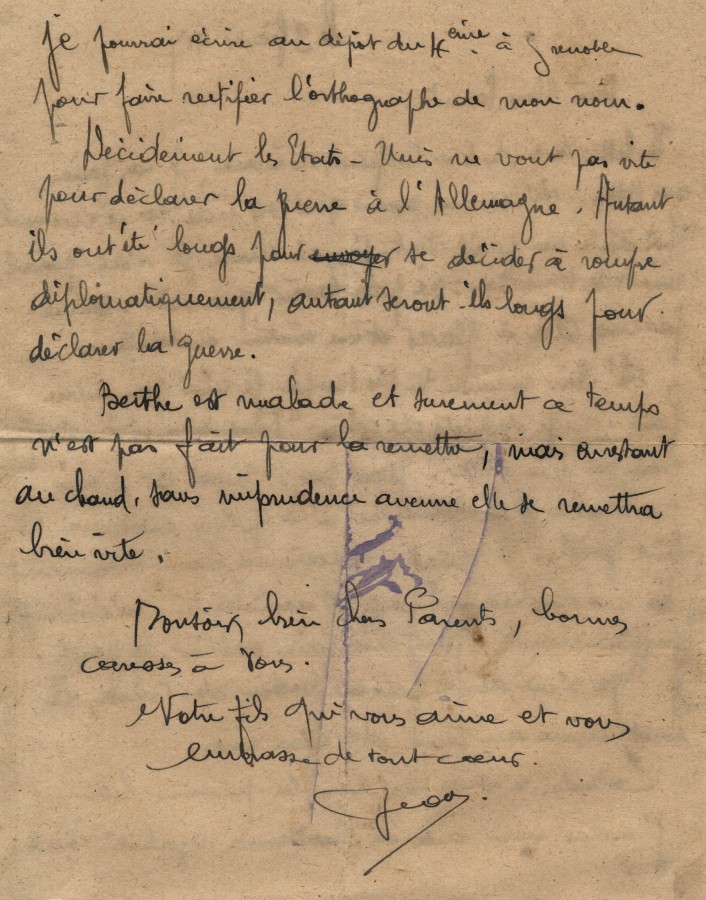 je pourrai écrire au dépôt du 4ème à Grenoble
pour faire rectifier l'orthographe de mon nom.
Décidément les Etats-Unis ne vont pas vite
pour déclarer la guerre à l'Allemagne. Autant
ils ont été longs pour envoyer se décider à rompre
diplomatiquement, autant seront-ils longs pour
déclarer la guerre.
Berthe est malade et surement ce temps
n'est pas fait pour la remettre, mais en restant
au chaud, sans imprudence aucune elle se remettra
bien vite.
Bonsoir, bien chers Parents, bonnes
caresses à Vous.
Votre fils qui vous aime et vous
embrasse de tout cœur.
Jean.